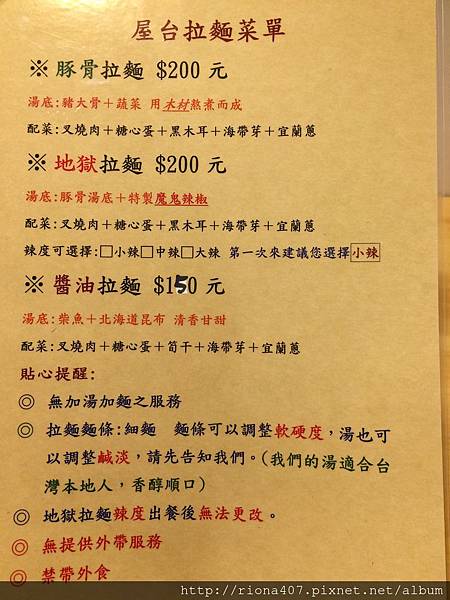 屋台拉麵菜單
※ 豚骨拉麵 $200 元
湯底:豬大骨＋蔬菜 用木材熬煮而成
配菜:叉燒肉＋糖心蛋＋黑木耳＋海帶芽＋宜蘭蔥
※ 地獄拉麵 $200 元
湯底:豚骨湯底＋特製魔鬼辣椒
配菜:叉燒肉＋糖心蛋＋黑木耳＋海帶芽＋宜蘭蔥
辣度可選擇:□小辣□中辣□大辣 第一次來建議您選擇小辣
※ 醬油拉麵 $150 元
湯底:柴魚＋北海道昆布 清香甘甜
配菜:叉燒肉＋糖心蛋＋筍干＋海帶芽＋宜蘭蔥
貼心提醒:
◎ 無加湯加麵之服務
◎ 拉麵麵條:細麵 麵條可以調整軟硬度，湯也可
以調整鹹淡，請先告知我們。(我們的湯適合台
灣本地人，香醇順口)
◎ 地獄拉麵辣度出餐後無法更改。
◎ 無提供外帶服務
◎ 禁帶外食
http://riona407.pixnet.net/album